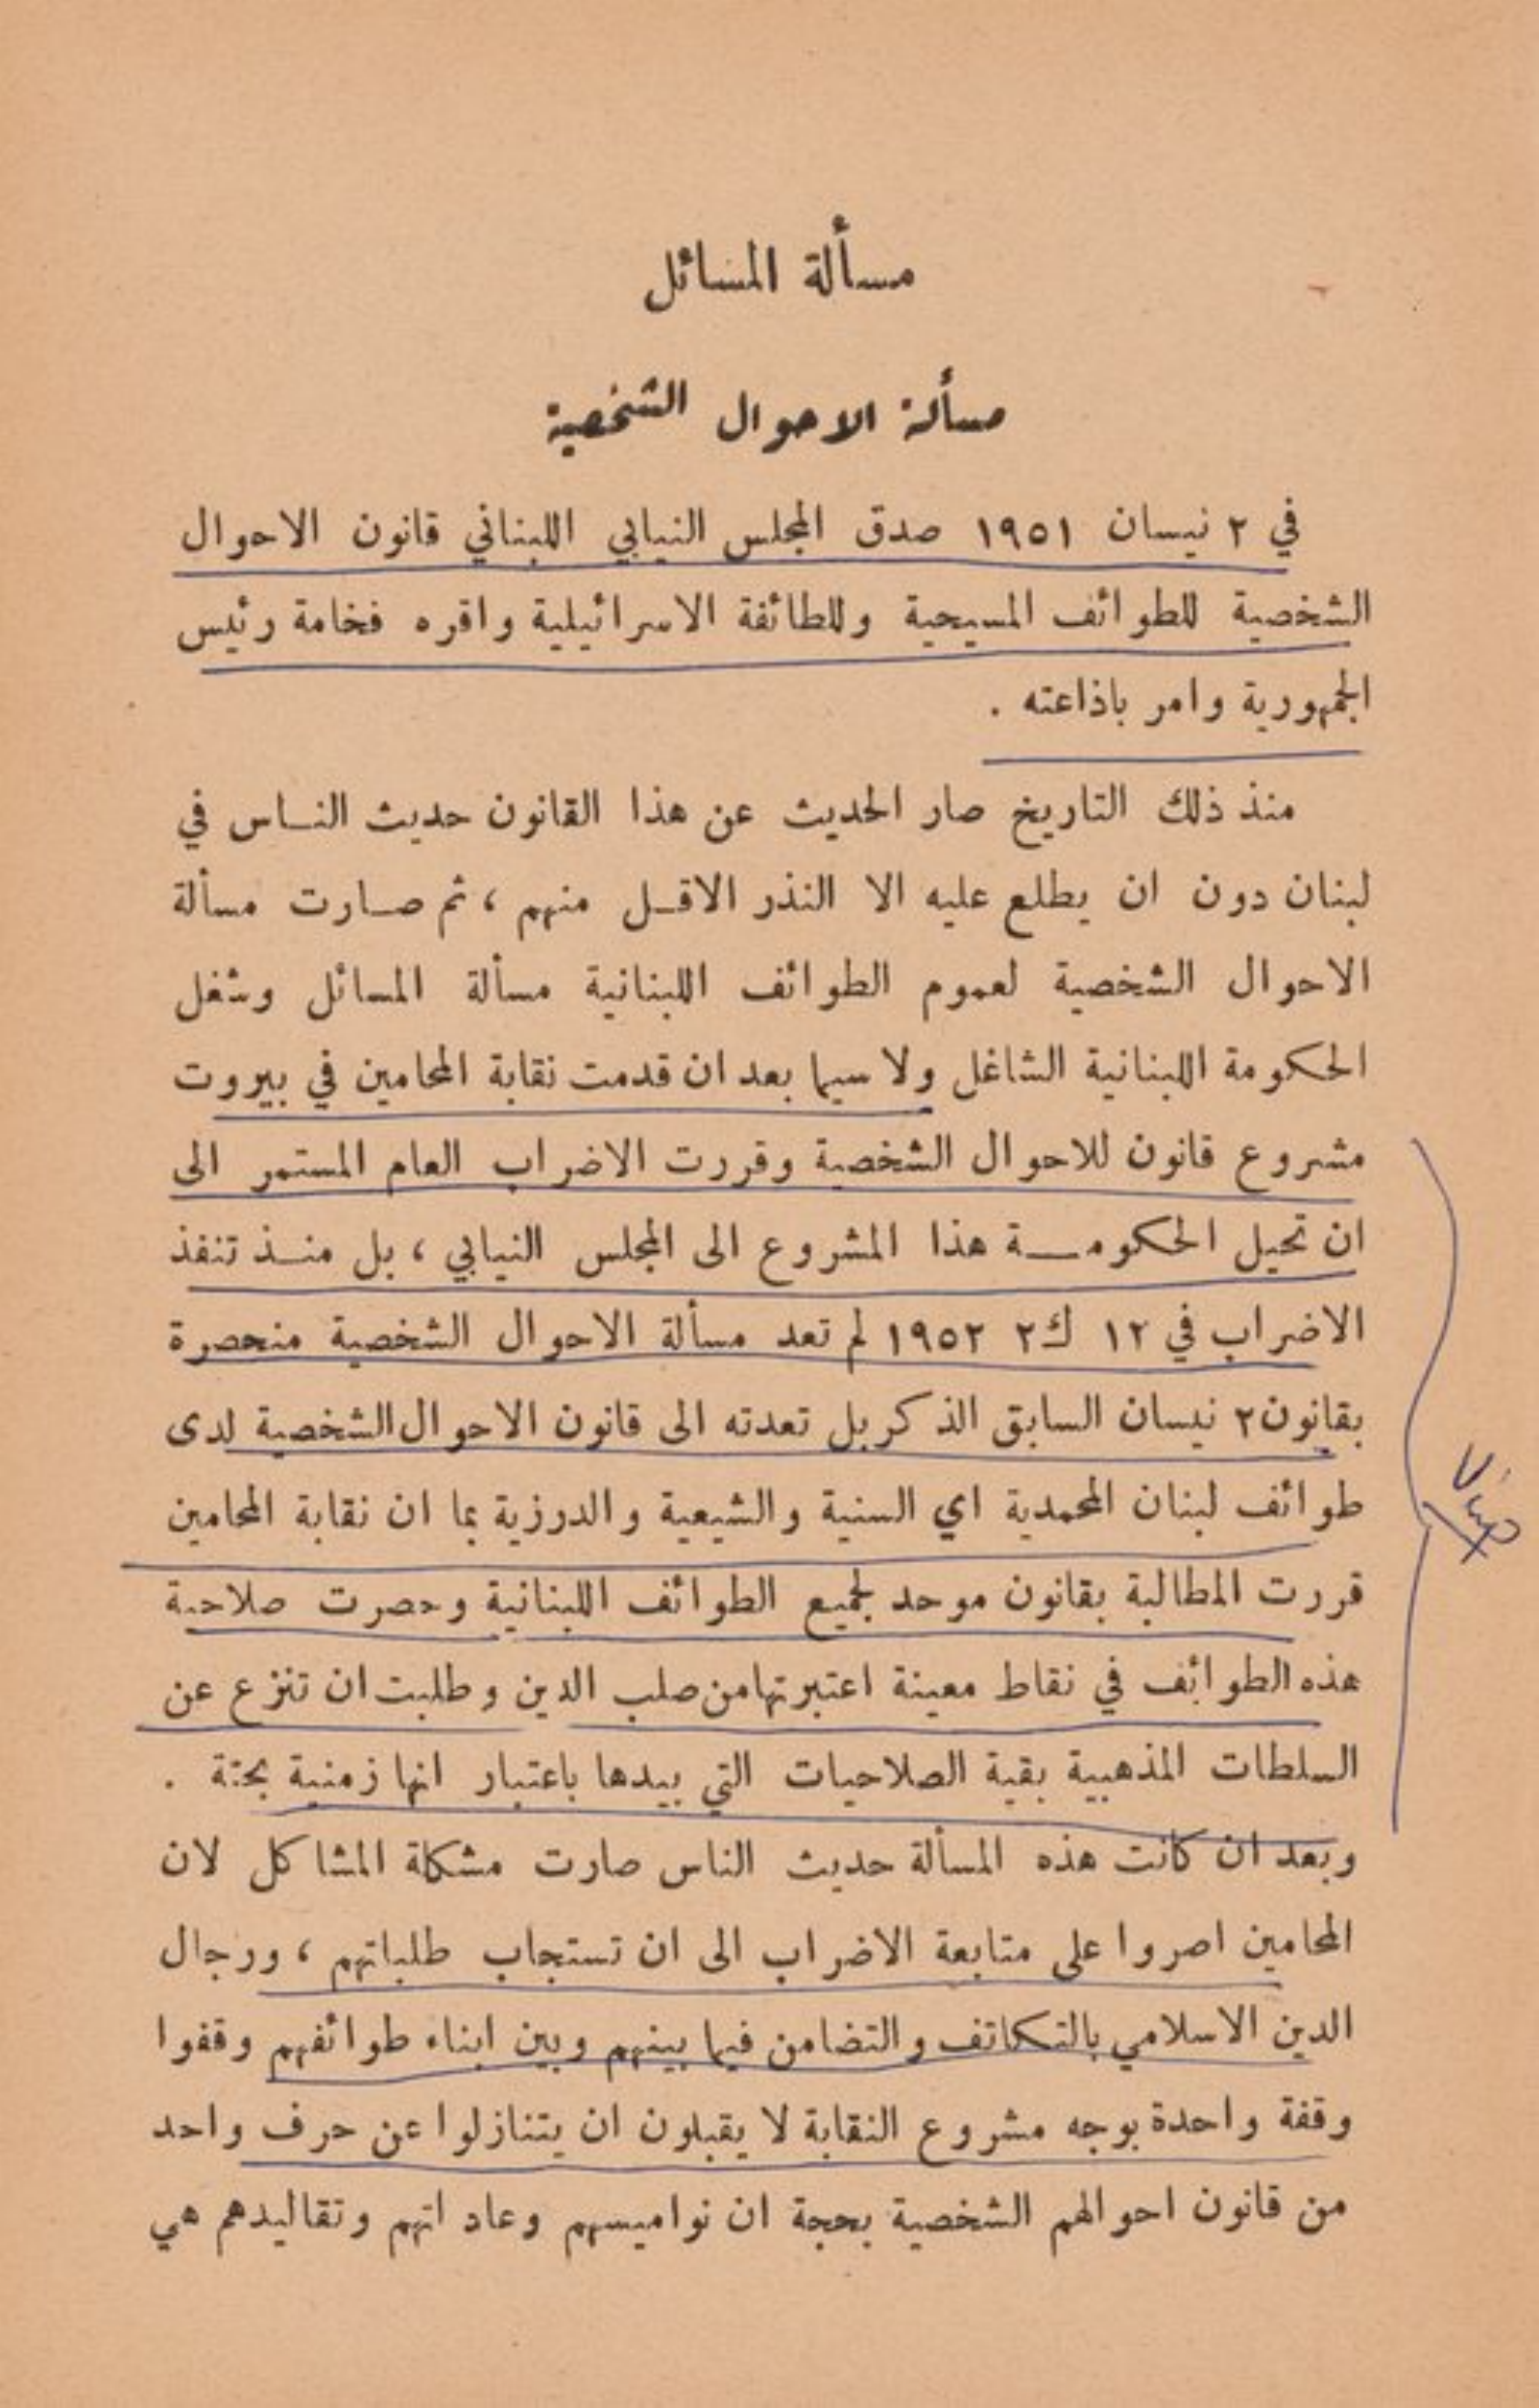 مسألة المسائل
مسألة الاحوال الشخصية
في ٢ نيسان ١٩٥١ صدق المجلس النيابي اللبناني قانون الاحوال
الشخصية للطوائف المسيحية وللطائفة الاسرائيلية واقره فخامة رئيس
الجمهورية وامر باذاعته .
منذ ذلك التاريخ صار الحديث عن هذا القانون حديث النـاس في
لبنان دون ان يطلع عليه الا النذر الاقـل منهم ، ثم صـارت مسألة
الاحوال الشخصية لعموم الطوائف اللبنانية مسألة المسائل وشغل
الحكومة اللبنانية الشاغل ولا سيما بعد ان قدمت نقابة المحامين في بيروت
مشروع قانون للاحوال الشخصية وقررت الاضراب العام المستمر الى
ان تحيل الحكومـة هذا المشروع الى المجلس النيابي ، بل منـذ تنفذ
الاضراب في ١٢ ك٢ ١٩٥٢ لم تعد مسألة الاحوال الشخصية منحصرة
بقانون ٢ نيسان السابق الذكر بل تعدته الى قانون الاحوال الشخصية لدى
طوائف لبنان المحمدية اي السنية والشيعية والدرزية بما ان نقابة المحامين
قررت المطالبة بقانون موحد لجميع الطوائف اللبنانية وحصرت صلاحية
هذه الطوائف في نقاط معينة اعتبرتها من صلب الدين وطلبت ان تنزع عن
السلطات المذهبية بقية الصلاحيات التي بيدها باعتبار انها زمنية بحتة .
وبعد ان كانت هذه المسألة حديث الناس صارت مشكلة المشاكل لان
المحامين اصروا على متابعة الاضراب الى ان تستجاب طلباتهم ، ورجال
الدين الاسلامي بالتكاتف والتضامن فيما بينهم وبين ابناء طوائفهم وقفوا
وقفة واحدة بوجه مشروع النقابة لا يقبلون ان يتنازلوا عن حرف واحد
من قانون احوالهم الشخصية بحجة ان نواميسهم وعاداتهم وتقاليدهم هي